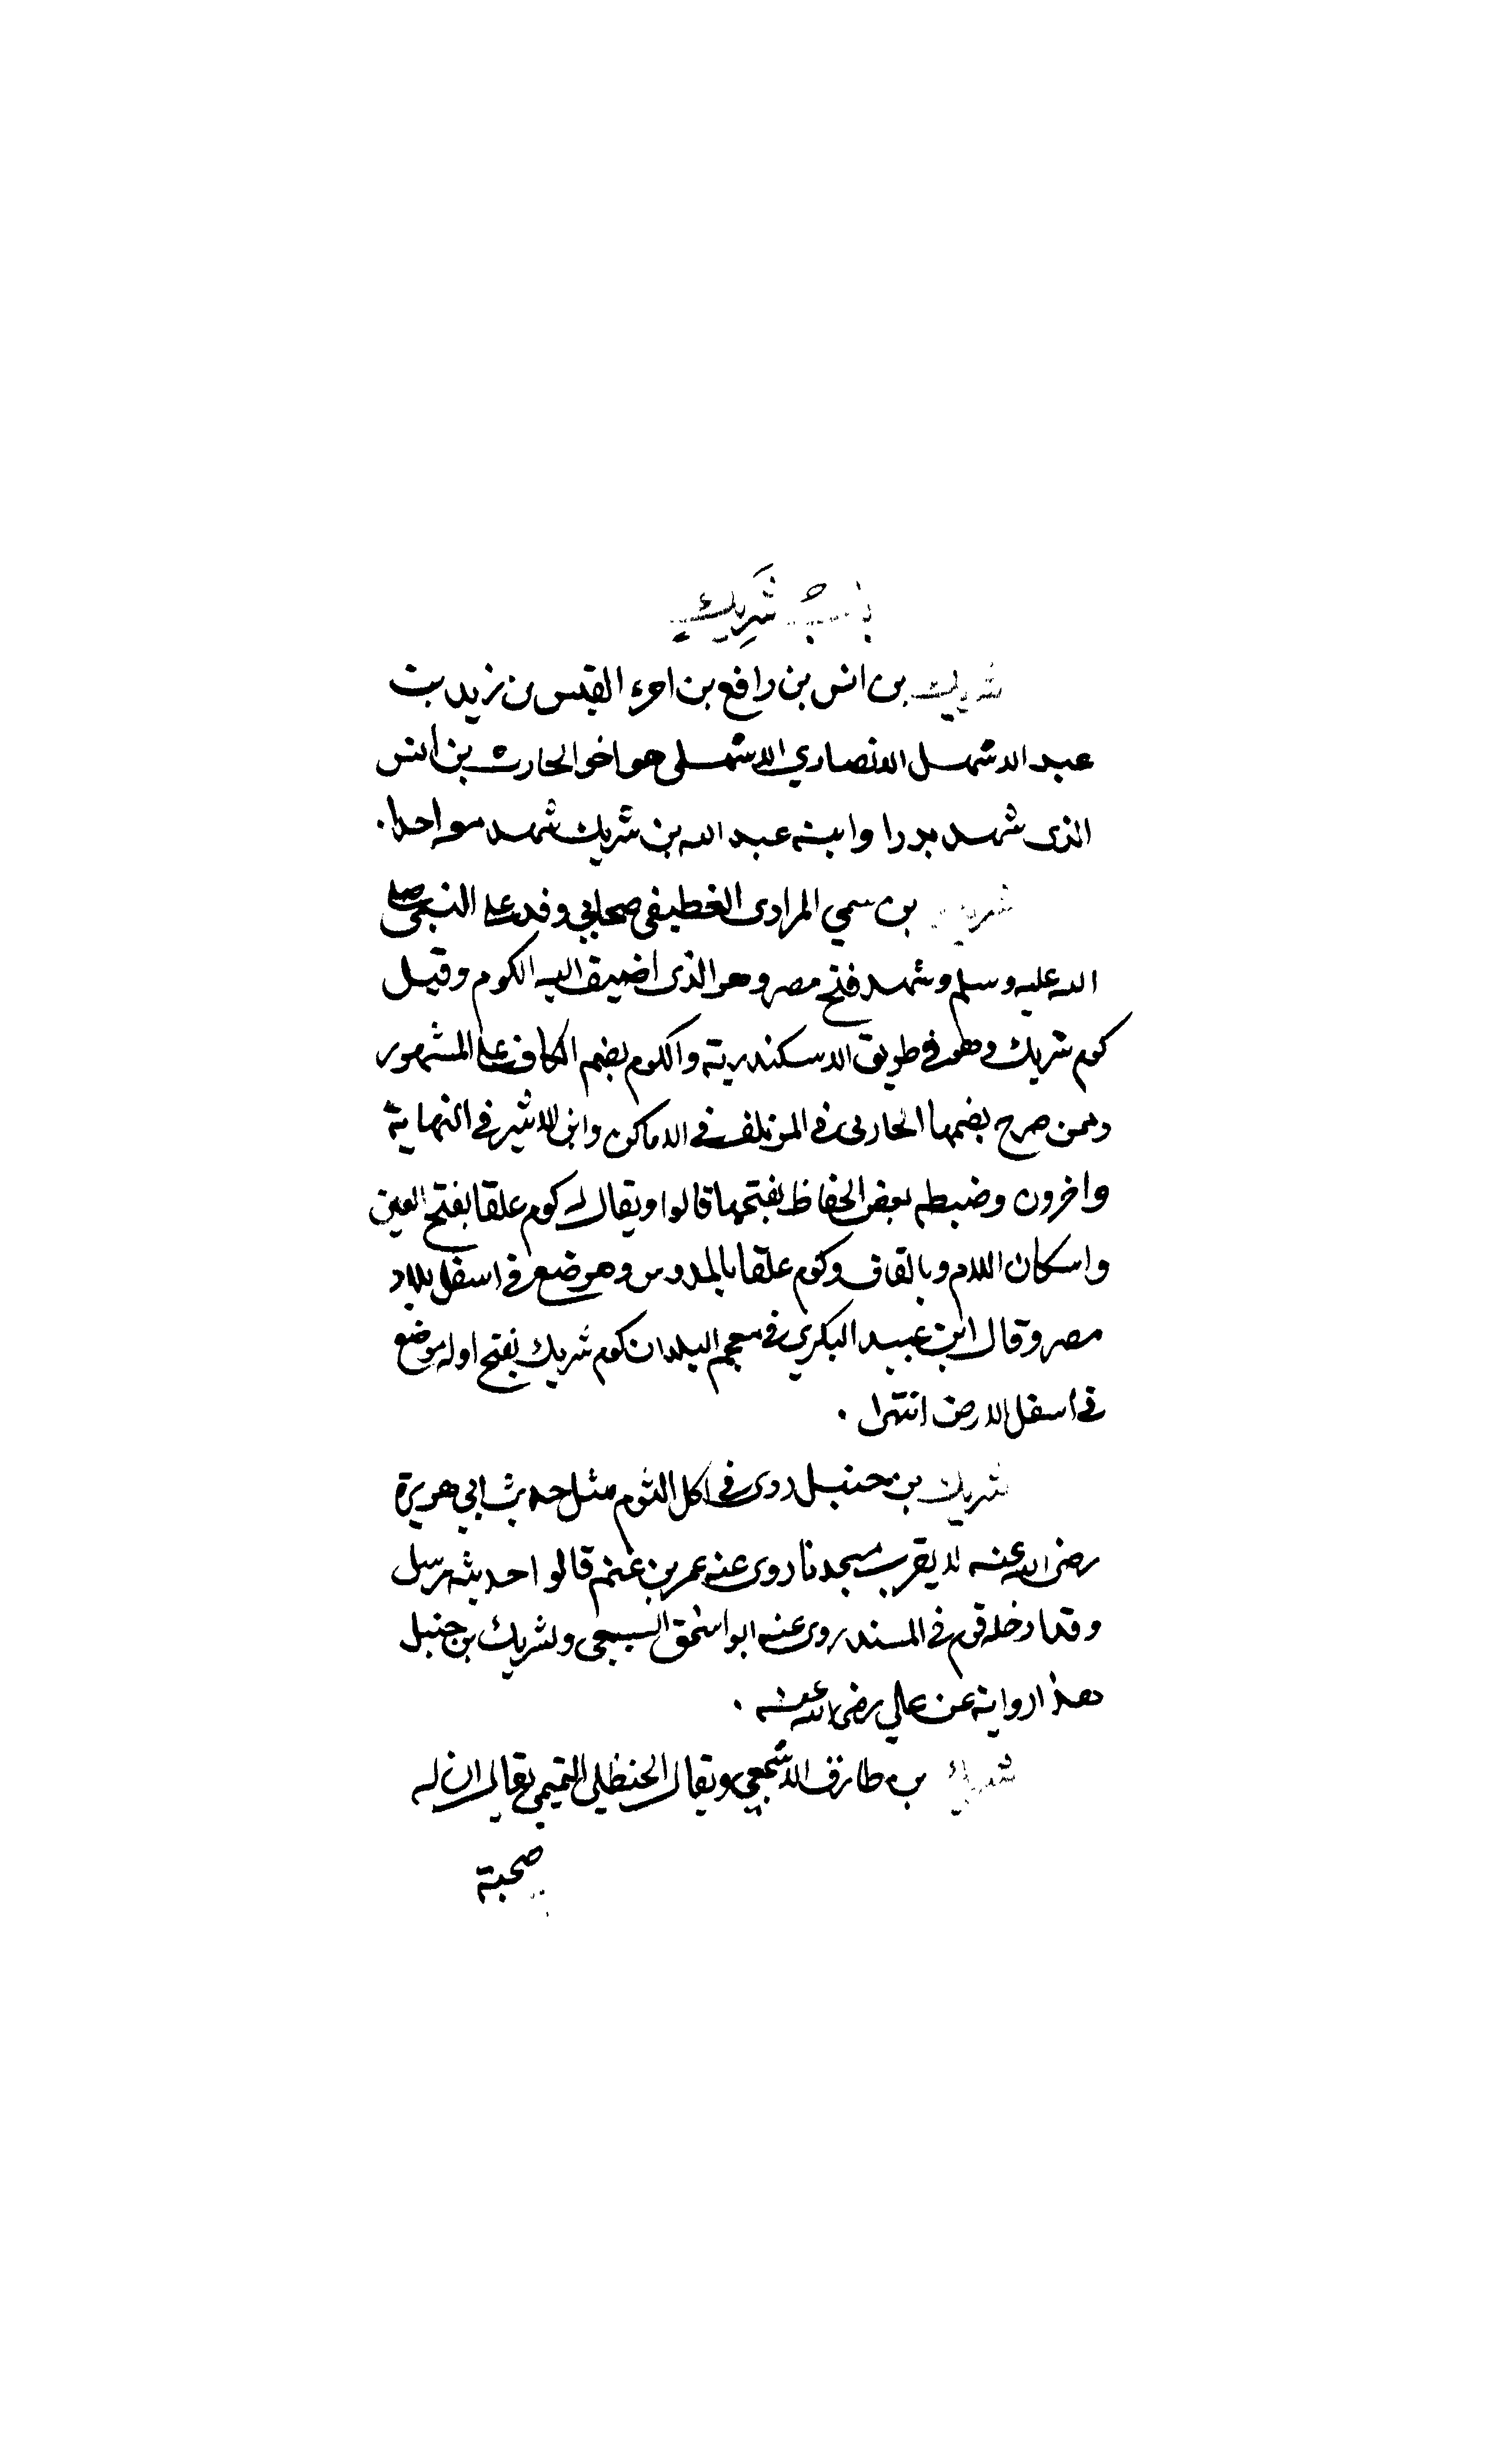 باب شريك
شريك بن انس بن رافع بن امرء القيس من زيد بن
عبد الاشهل الانصاري الاشهلي هو اخو الحارث بن انس
الذى شهد بدرا وابنه عبد الله بن شريك شهد معه احدا.
شريك بن سمي المرادى الغطيفي صحابي وفد على النبي صلى
الله عليه وسلم وشهد فتح مصر وهو الذى اضيف اليه الكوم وقيل
كوم شريك وهو في طريق الاسكندرية والكوم بضم الكاف على المشهور
وممن صرح بضمها الحازمى في المؤتلف في الاماكن وابن الاثير في النهاية
واخرون وضبطه بعض الحفاظ بفتحها قالوا ويقال له كوم علقا بفتح العين
واسكان اللام وبالقاف وكوم علقا وهو موضع في اسفل بلاد
مصر وقال ابن عبيد البكري في معجم البلدان كوم شريك بفتح اوله موضع
في اسفل الارض انتهى.
شريك بن حنبل روى في اكل الثوم مثل حديث ابي هريرة
رضى الله عنه لا يقرب مسجدنا روى عنه عمير بن غنم قالوا حديثه مرسل
وقد ادخله قوم في المسند روى عنه ابو اسحق السبيعى ولشريك بن حنبل
هذا رواية عن علي رضى الله عنه.
شريك بن طارق الاشجعي ويقال الحنظلي التميمي يقال ان له
صحبة